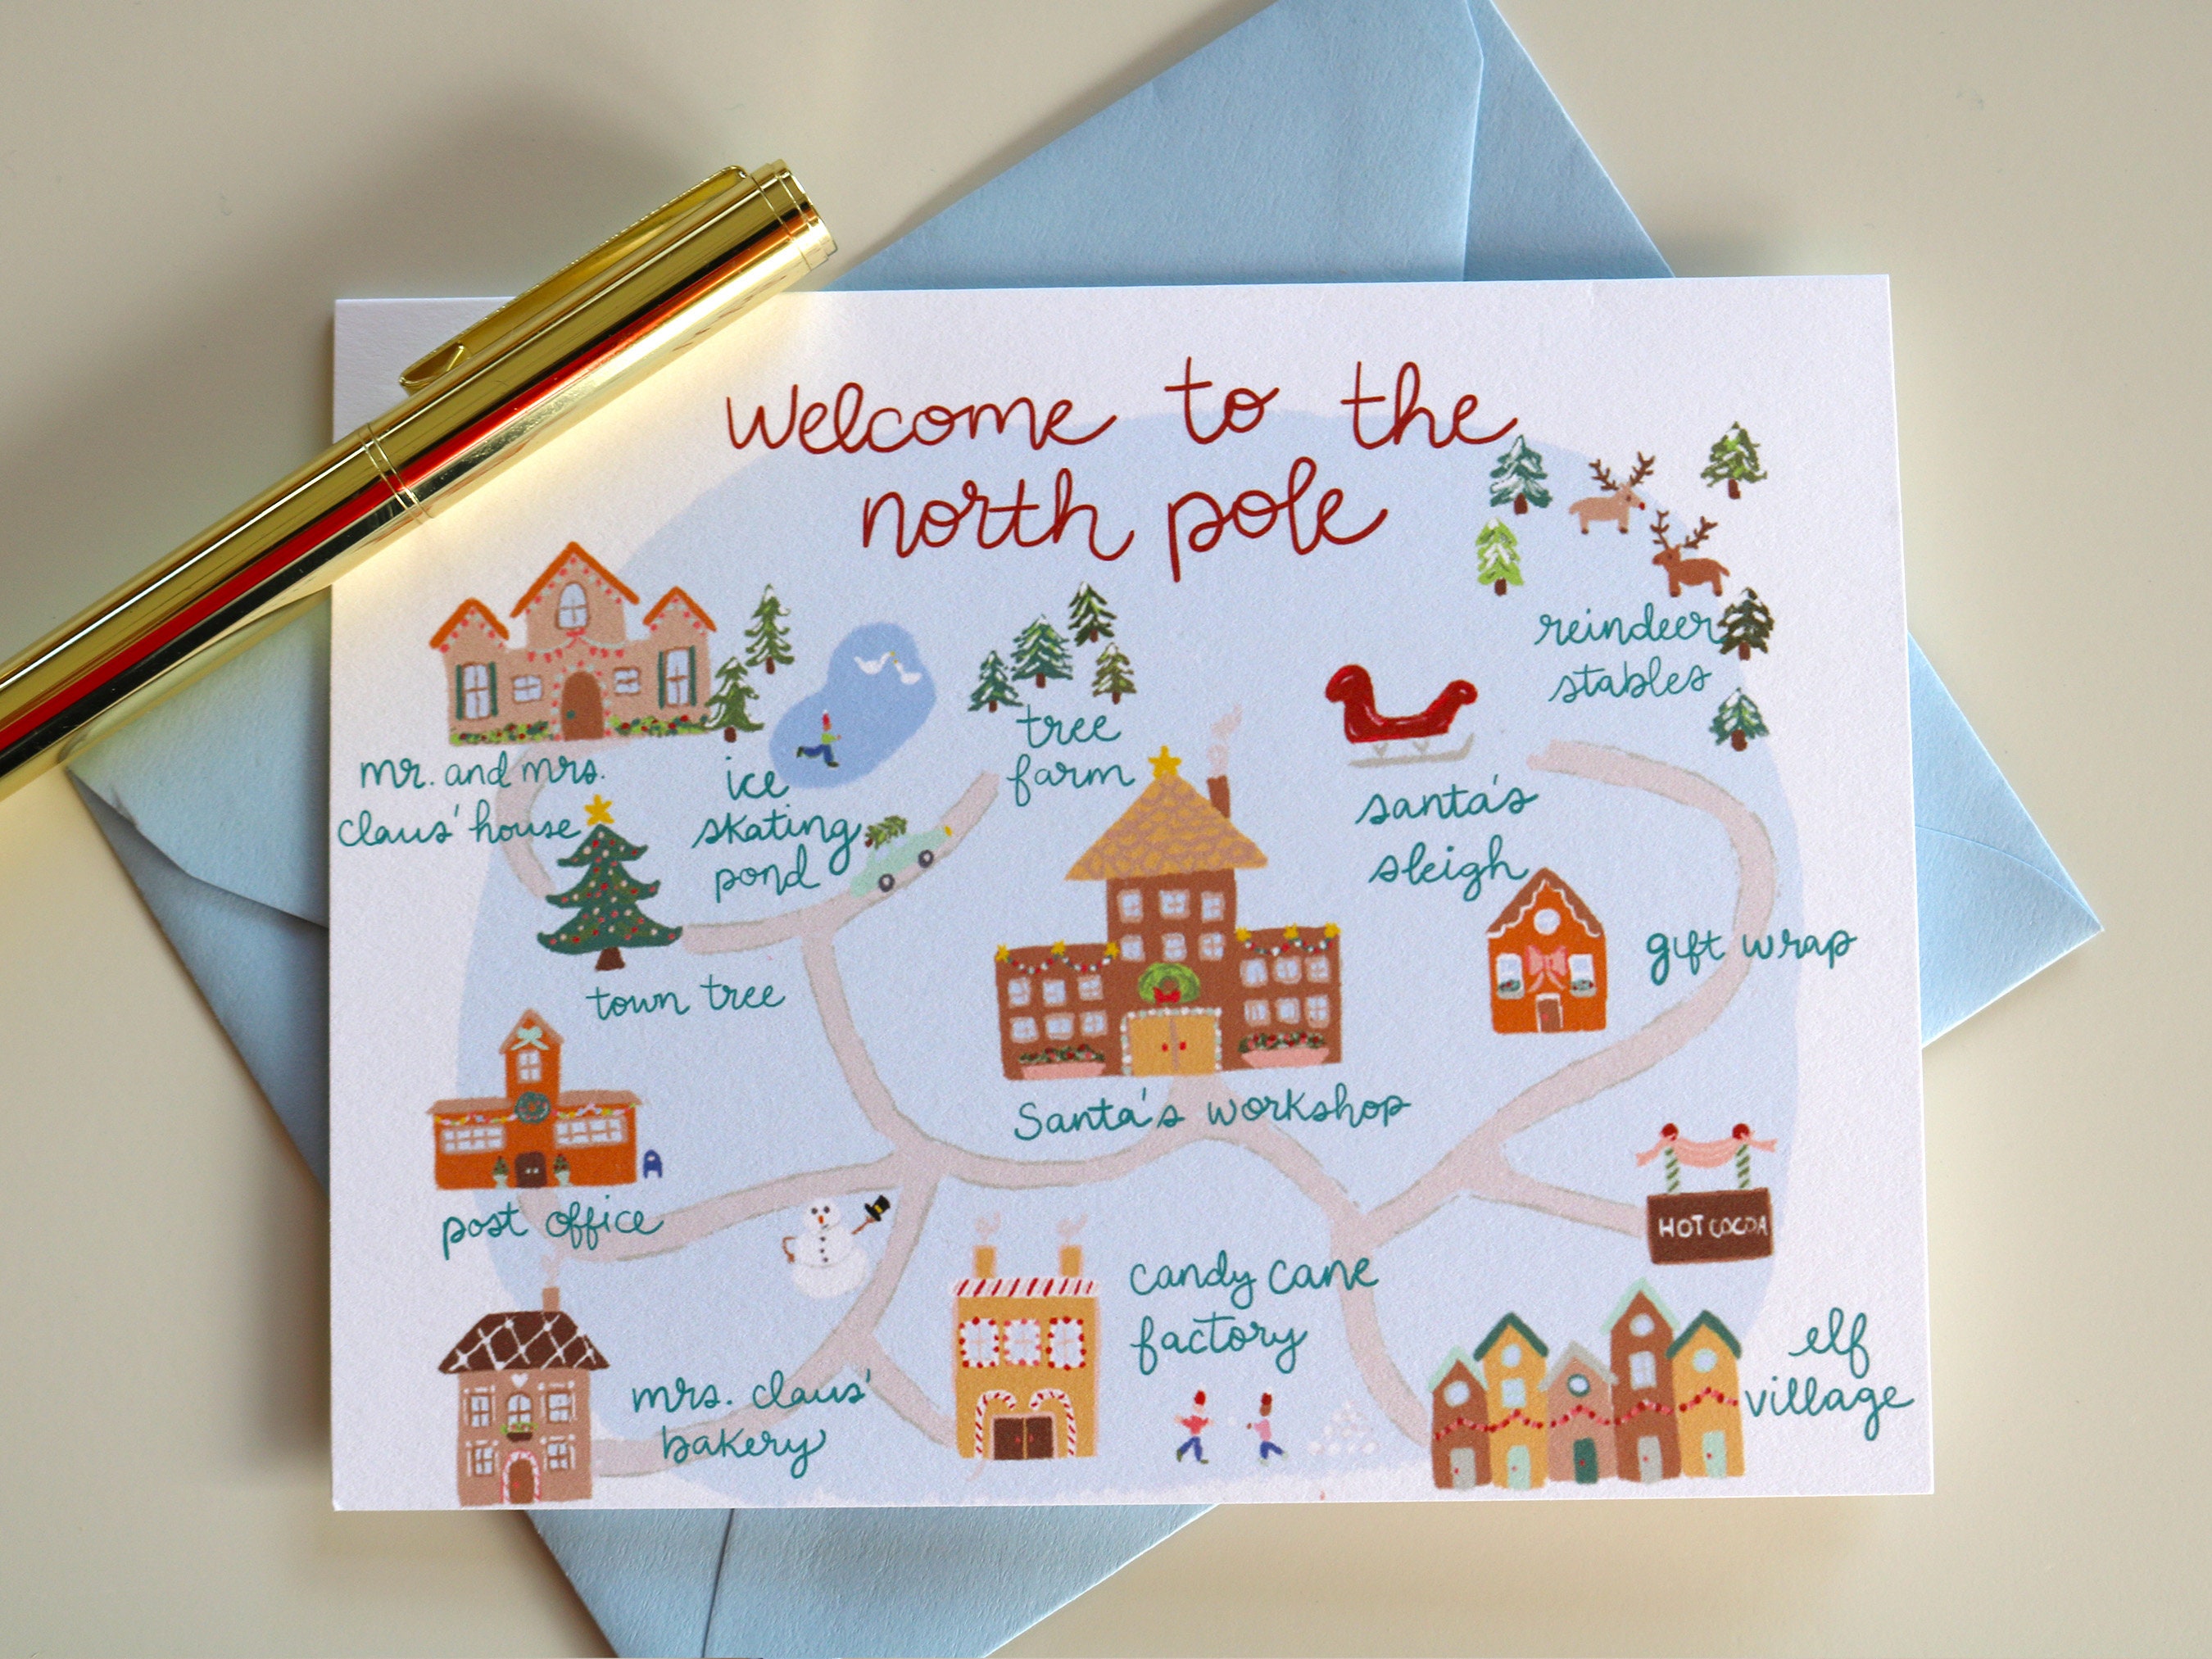 Welcome to the
north pole
reindeer
stables
mr. and mrs.
claus' house
ice
skating
pond
tree
farm
santa's
sleigh
gift wrap
town tree
Santa's workshop
post office
HOT COCOA
candy cane
factory
mrs. claus'
bakery
elf
village